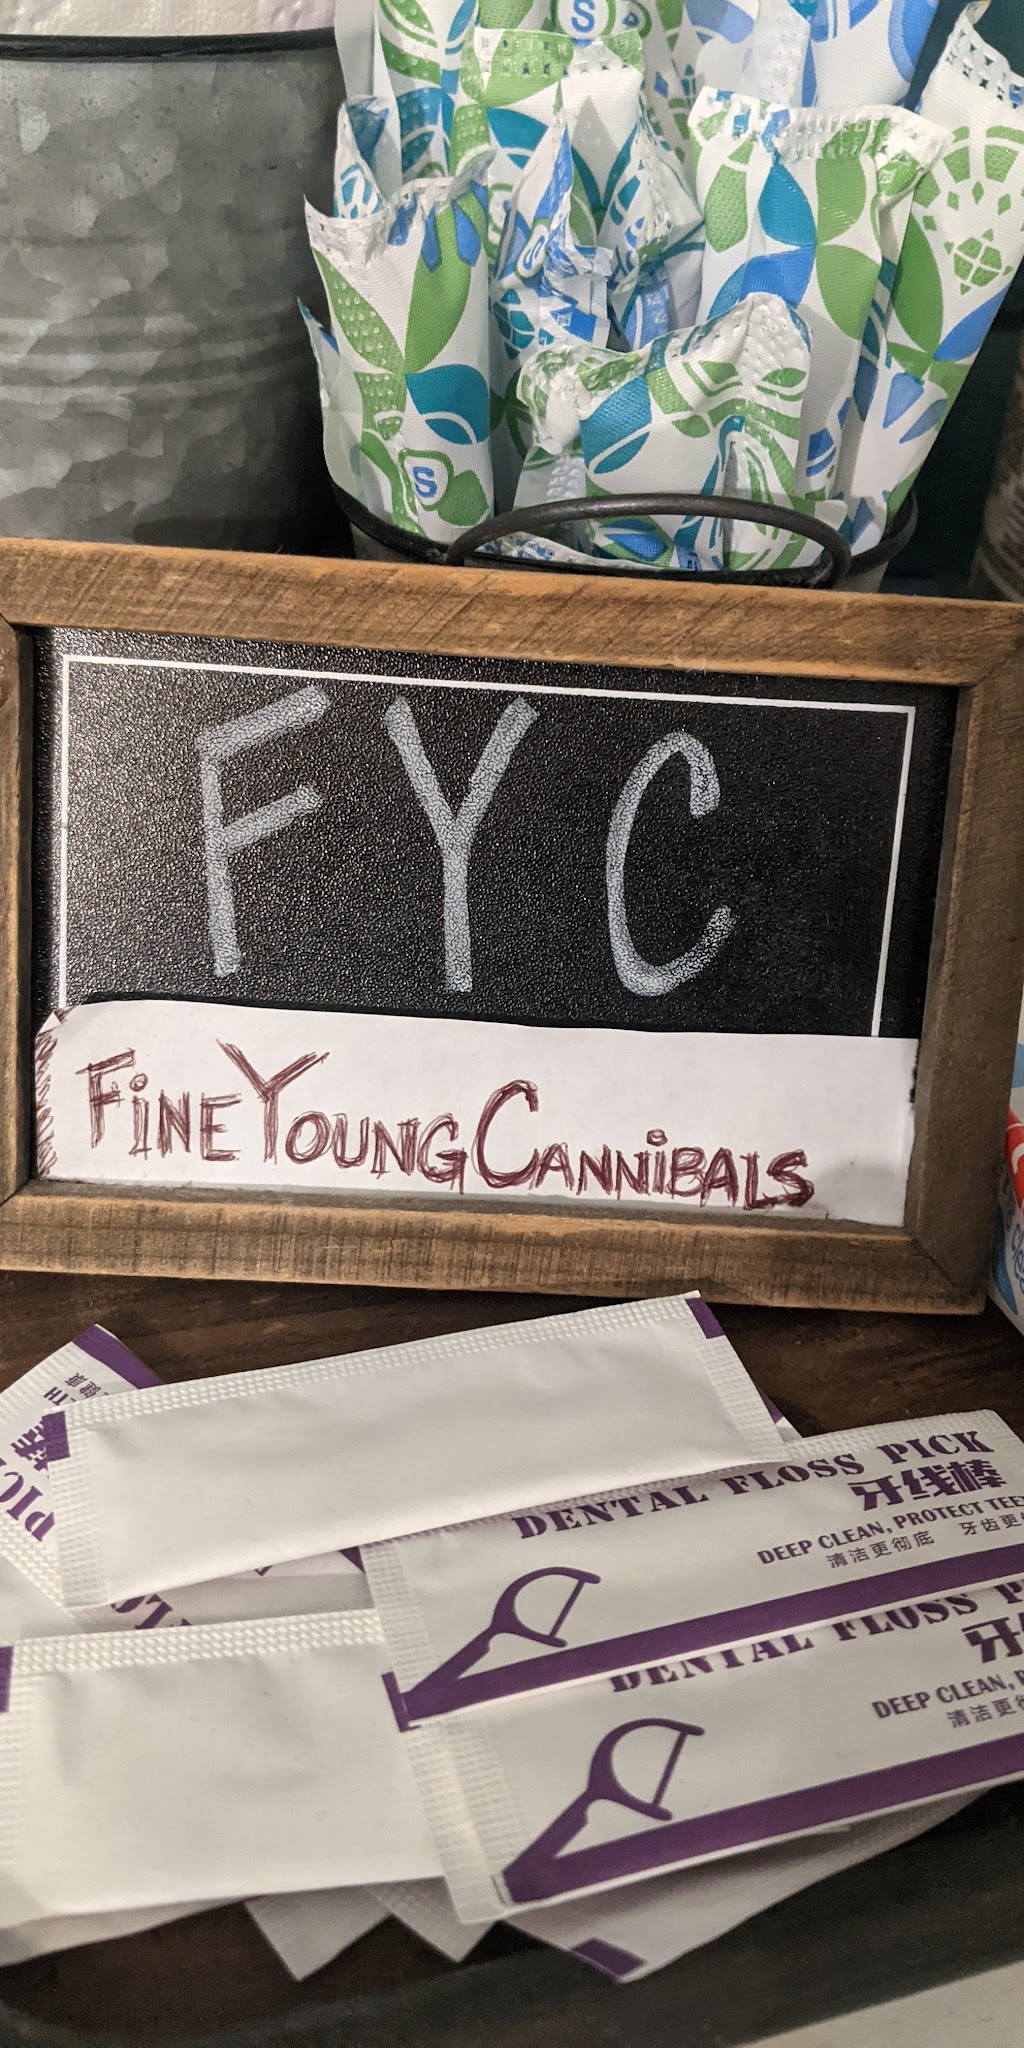 S
S
S
FYC
FiNE YOUNG CANNiBALS
DENTAL FLOSS PICK
牙线棒
DEEP CLEAN, PROTECT
清洁更彻底 牙齿更
DENTAL FLOSS
DEEP CLEAN,
清洁更